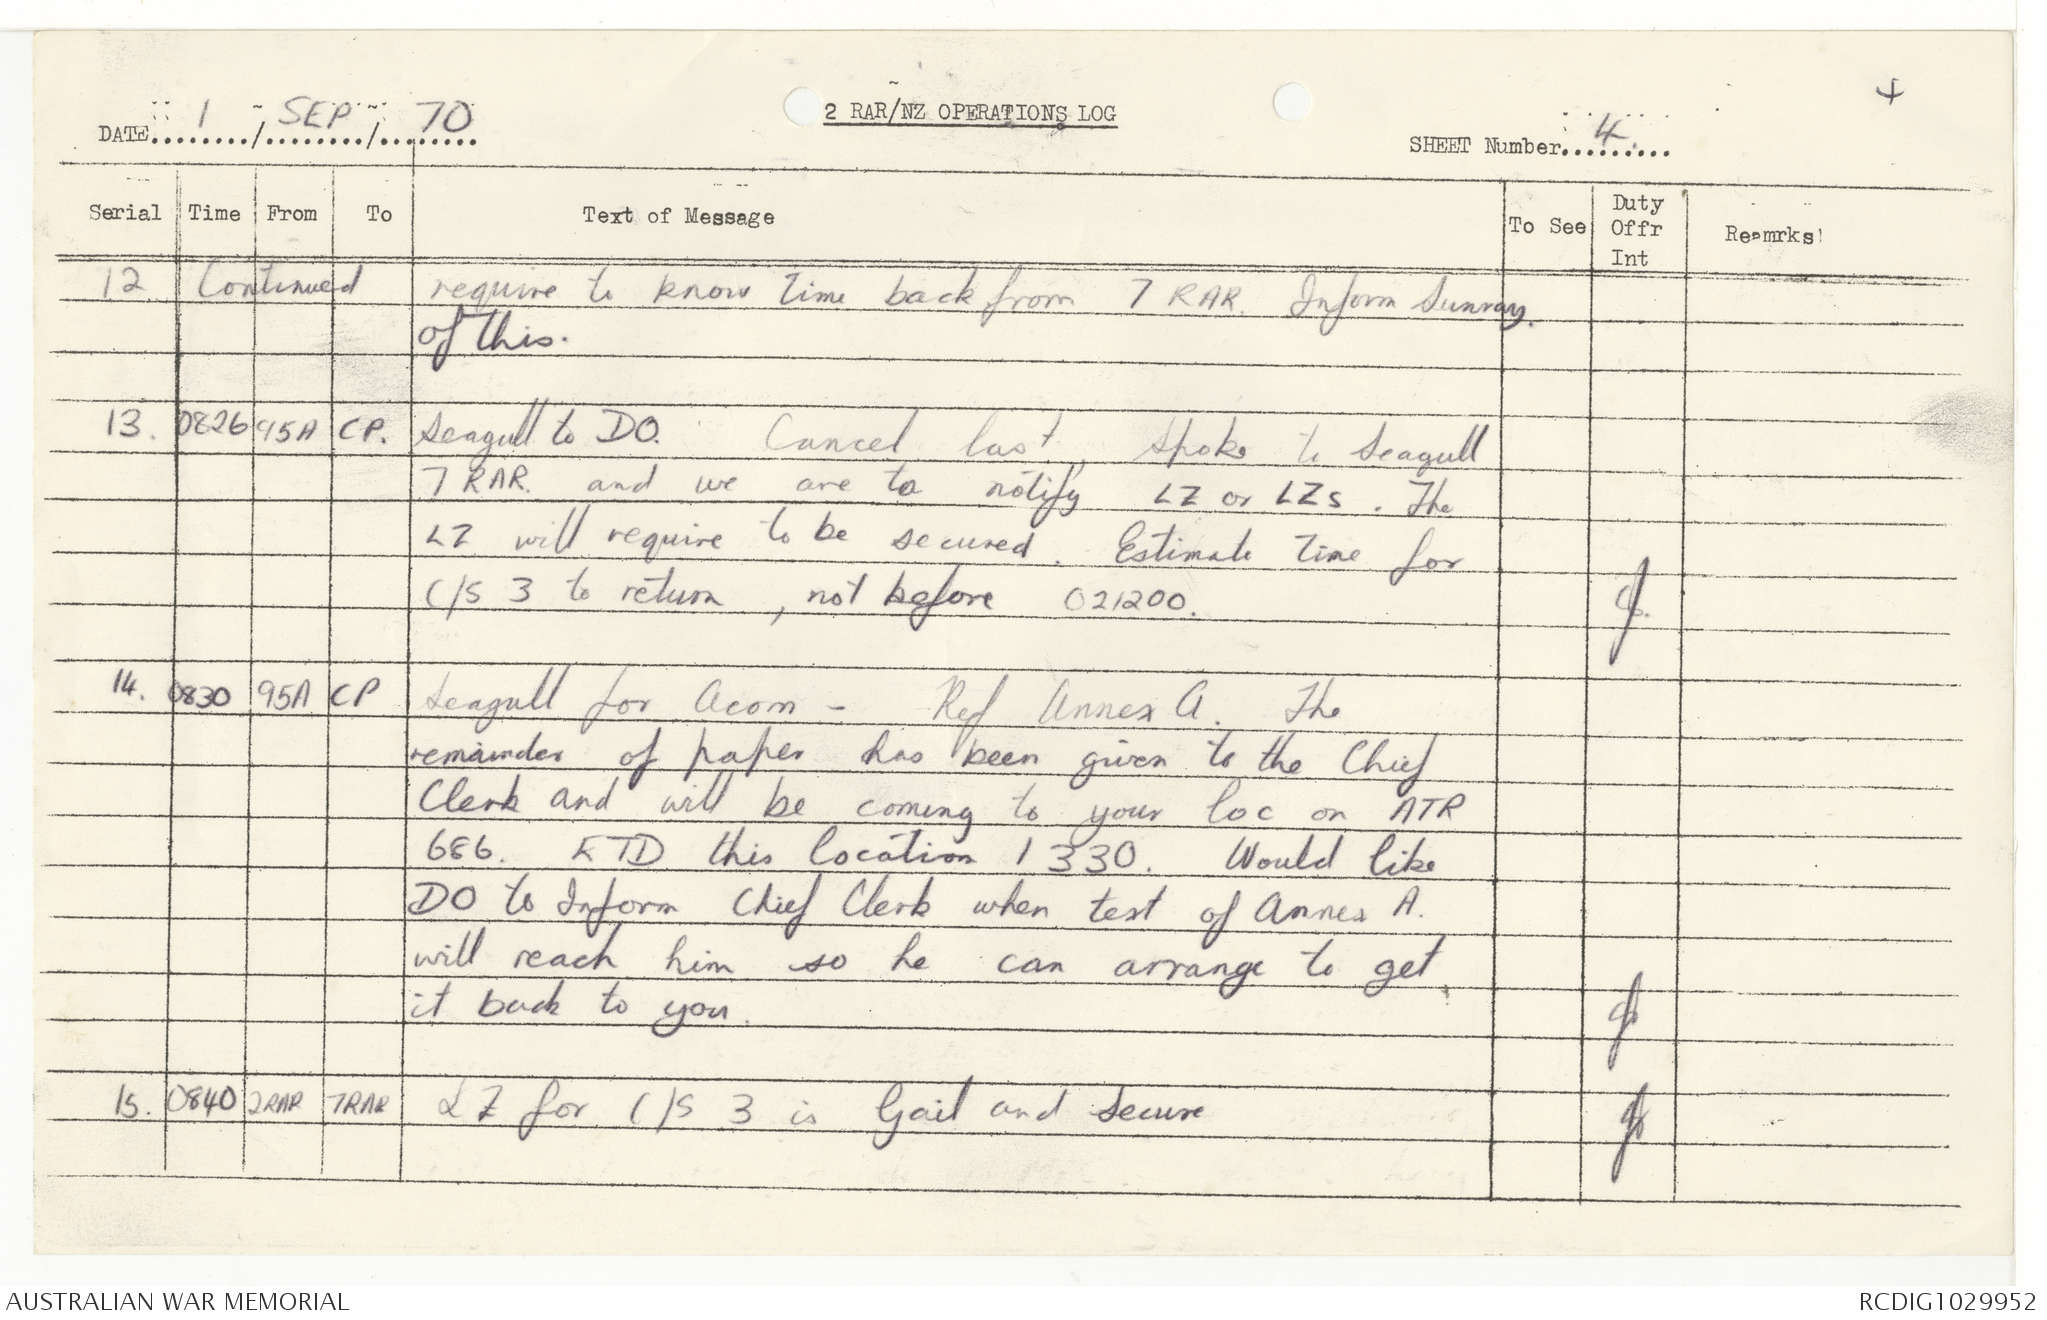 4
DATE 1 / SEP / 70
2 RAR/NZ OPERATIONS LOG
SHEET Number 4
Serial Time From To Text of Message To See Duty Offr Int Reamrks
12 Continued require to know time back from 7 RAR. Inform Sunray
of this.
13. 0826 95A CP. Seagull to DO. Cancel last, Spoke to Seagull
7 RAR. and we are to notify LZ or LZs. The
LZ will require to be secured. Estimate time for
C/S 3 to return, not before 021200.
14. 0830 95A CP Seagull for Acorn - Ref Annex A. The
remainder of paper has been given to the Chief
Clerk and will be coming to your loc on ATR
686. ETD this location 1330. Would like
DO to Inform Chief Clerk when text of Annex A.
will reach him so he can arrange to get
it back to you.
15. 0840 2RAR 7RAR LZ for C/S 3 is Gail and Secure
AUSTRALIAN WAR MEMORIAL
RCDIG1029952